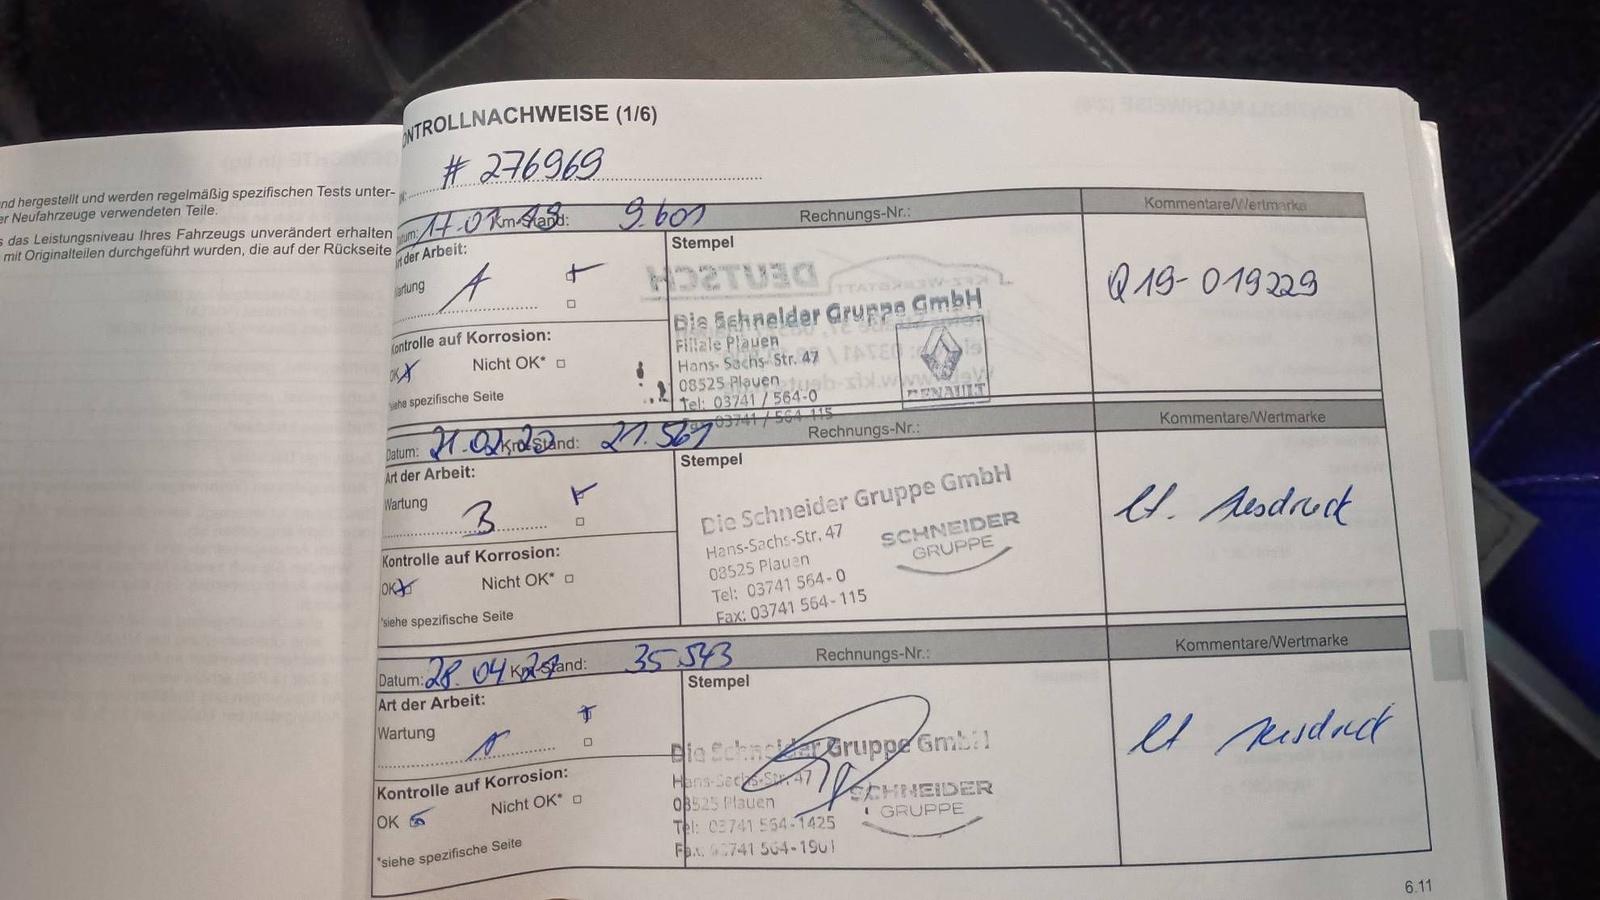 nd hergestellt und werden regelmäßig spezifischen Tests unter-
er Neufahrzeuge verwendeten Teile.
s das Leistungsniveau Ihres Fahrzeugs unverändert erhalten
mit Originalteilen durchgeführt wurden, die auf der Rückseite
ONTROLLNACHWEISE (1/6)
# 276969
Datum: 17.01.19 Km-Stand: 9.601 Rechnungs-Nr.: Kommentare/Wertmarke
Art der Arbeit:
Wartung A
Kontrolle auf Korrosion:
OK Nicht OK*
*siehe spezifische Seite
Stempel
Die Schneider Gruppe GmbH
Filiale Plauen
Hans-Sachs-Str. 47
08525 Plauen
Tel: 03741 / 564-0
Fax: 03741 / 564-115
RENAULT
Q19-019229
Datum: 21.02.20 Km-Stand: 21.561 Rechnungs-Nr.: Kommentare/Wertmarke
Art der Arbeit:
Wartung B
Kontrolle auf Korrosion:
OK Nicht OK*
*siehe spezifische Seite
Stempel
Die Schneider Gruppe GmbH
Hans-Sachs-Str. 47
08525 Plauen
Tel: 03741 564-0
Fax: 03741 564-115
SCHNEIDER
GRUPPE
lt. Ausdruck
Datum: 28.04.21 Km-Stand: 35.543 Rechnungs-Nr.: Kommentare/Wertmarke
Art der Arbeit:
Wartung A
Kontrolle auf Korrosion:
OK Nicht OK*
*siehe spezifische Seite
Stempel
Die Schneider Gruppe GmbH
Hans-Sachs-Str. 47
08525 Plauen
Tel: 03741 564-1425
Fax: 03741 564-1901
SCHNEIDER
GRUPPE
lt Ausdruck
6.11